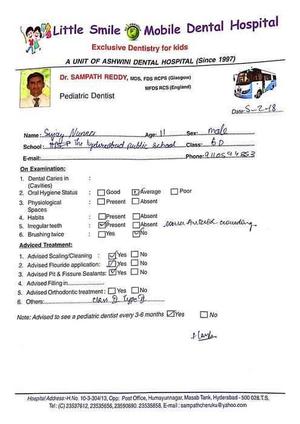 Little Smile Mobile Dental Hospital
Exclusive Dentistry for kids
A UNIT OF ASHWINI DENTAL HOSPITAL (Since 1997)
Dr. SAMPATH REDDY, MDS, FDS RCPS (Glasgow)
MFDS RCS (England)
Pediatric Dentist
Date: 5-2-18
Name: Age: 11 Sex: male
School: The hyderabad public school Class: 6D
E-mail: Phone:
On Examination:
1. Dental Caries in (Cavities) :
2. Oral Hygiene Status : Good Average Poor
3. Physiological Spaces : Present Absent
4. Habits : Present Absent
5. Irregular teeth : Present Absent crowding
6. Brushing twice : Yes No
Adviced Treatment:
1. Advised Scaling/Cleaning : Yes No
2. Advised Flouride application: Yes No
3. Advised Pit & Fissure Sealants: Yes No
4. Advised Filling in
5. Advised Orthodontic treatment : Yes No
6. Others:
Note: Advised to see a pediatric dentist every 3-6 months Yes No
Hospital Address - H.No. 10-3-304/13, Opp: Post Office, Humayunnagar, Masab Tank, Hyderabad - 500 028.T.S.
Tel: (C) 23537612, 23535656, 23590690, 23535858, E-mail : sampathcheruku@yahoo.com